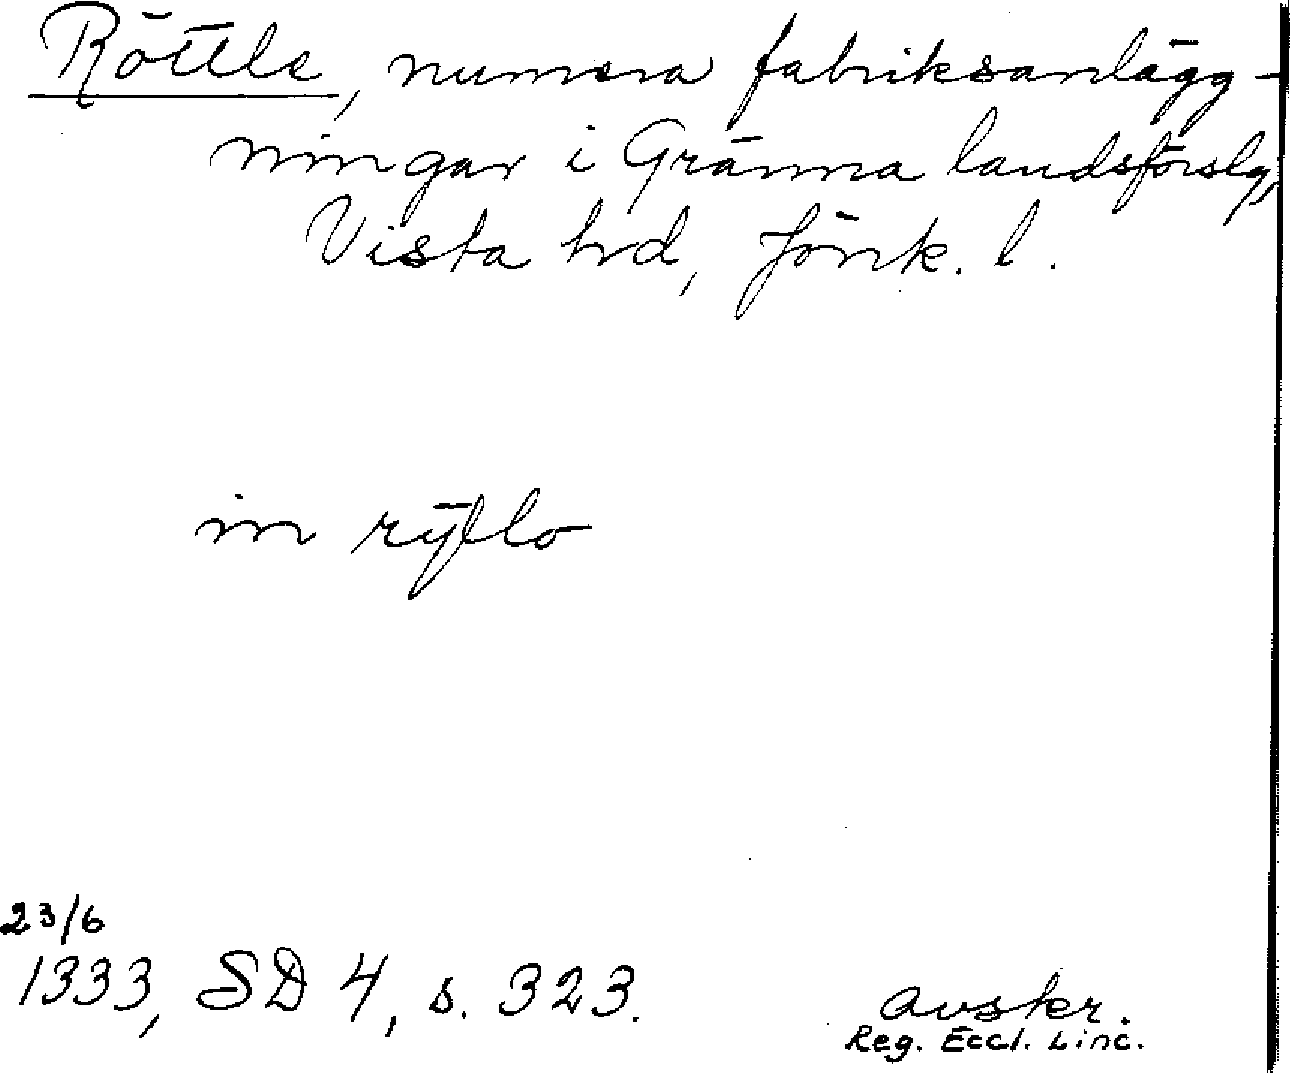 Röttle, numera fabriksanlägg-
ningar i Gränna landsförslg,
Vista hd, Jönk. l.
in rÿllo
23/6
1333, SD 4, s. 323.
avskr.
Reg. Eccl. Linc.